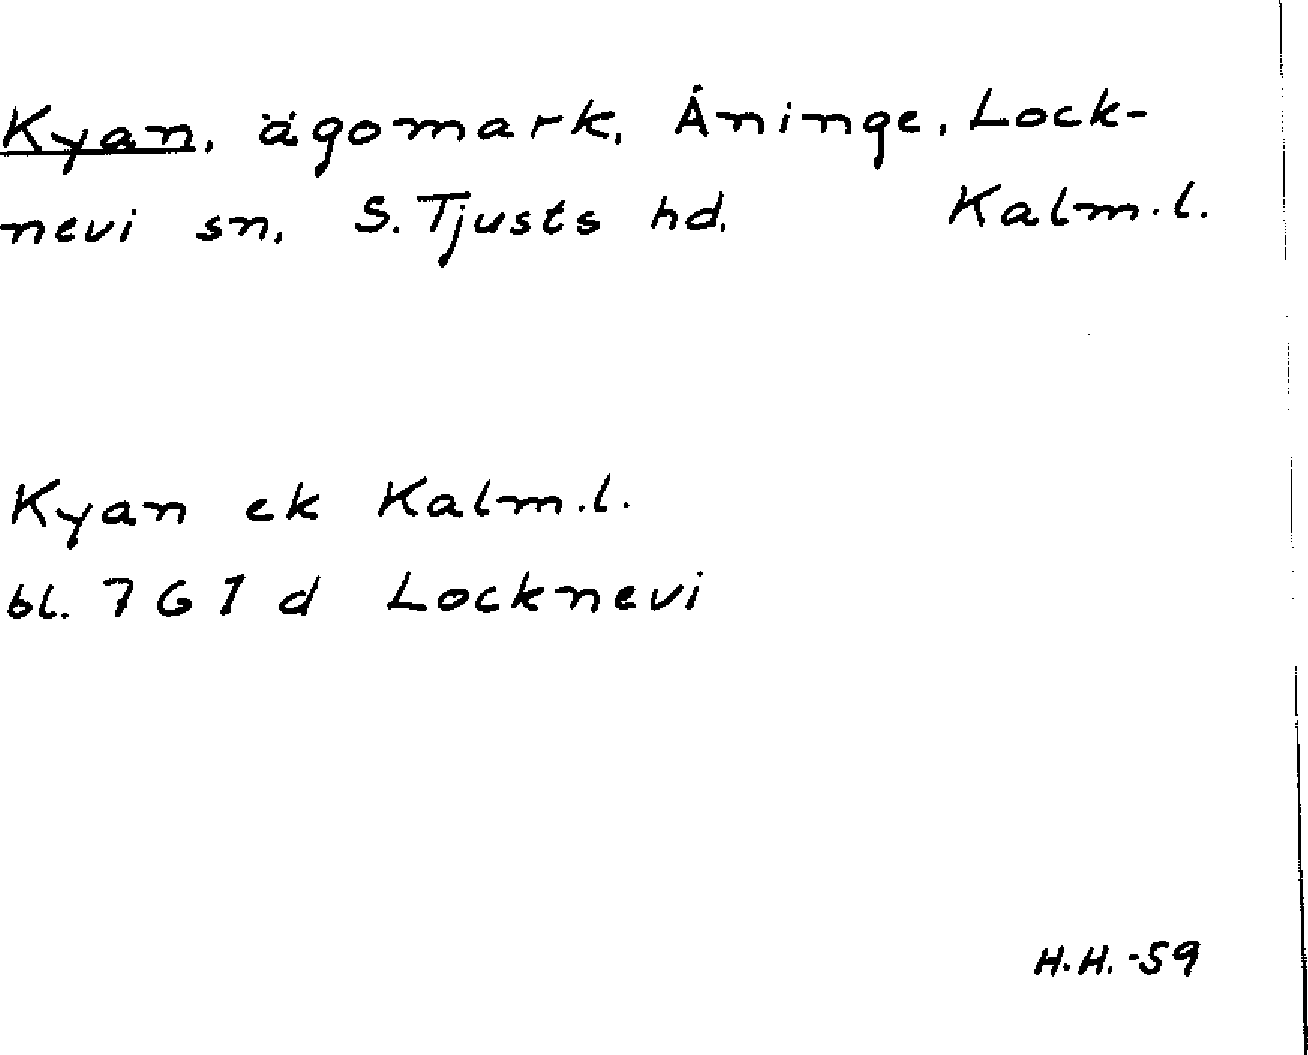 Kyan, ägomark, Åninge, Lock-
nevi sn, S. Tjusts hd. Kalm.l.
Kyan ek Kalm.l.
bl. 7 G 1 d Locknevi
H.H. -59